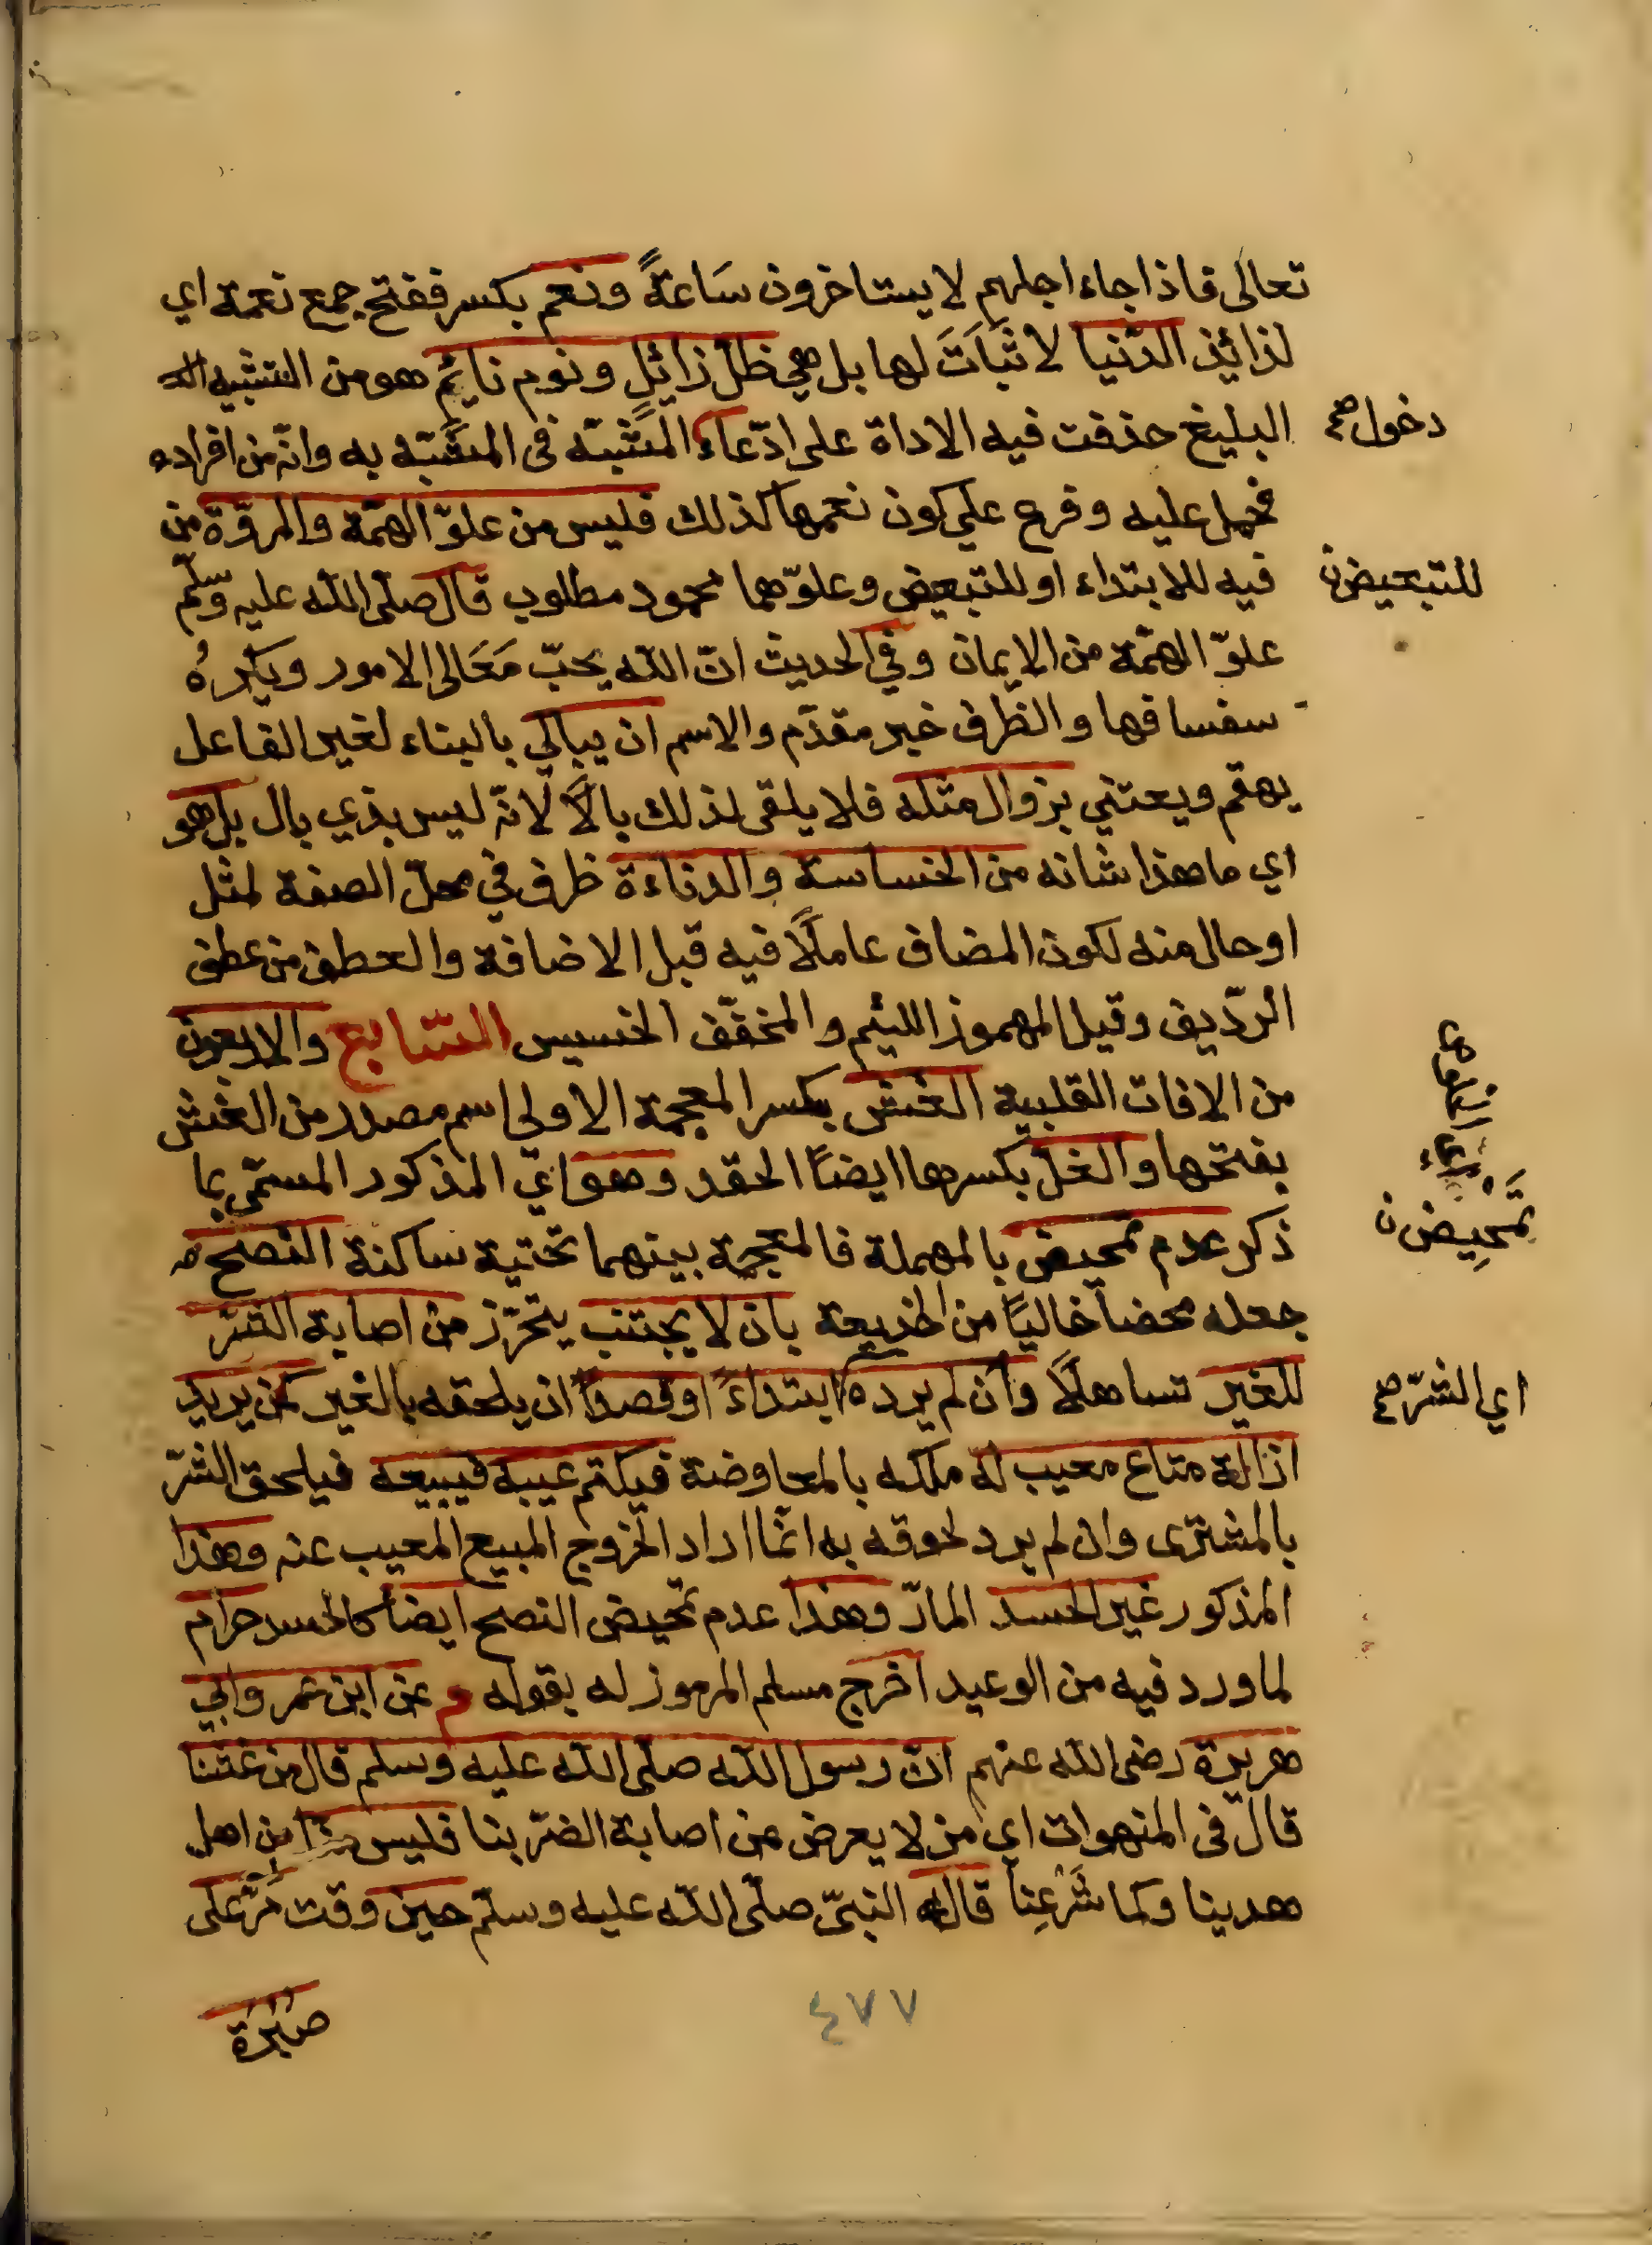 تعالى فاذا جاء اجلهم لا يستاخرون سَاعةً ونعم بكسر ففتح جمع نعمة اي
لذائذ الدّنيا لا ثبَاتَ لها بل هي ظلّ زائلٍ ونوم نايمٌ هو من التشبيه
البليغ حذفت فيه الاداة على ادّعاء المشبّه في المشبّه به وانّه من افراده
دخول صح
فحمل عليه وفرع علي كون نعمها كذلك فليس من علوّ الهمّة والمروّة من
فيه للابتداء او للتبعيض وعلوّهما محمود مطلوب قال صلّى الله عليه وسلّم
للتبعيض ن
علوّ الهمّة من الايمان وفي الحديث انّ الله يحبّ مَعَالى الامور ويكرهُ
سفسافها والظرف خبر مقدّم والاسم ان يبالي بالبناء لغير الفاعل
يهتم ويعتني بزوال مثله فلا يلقى لذلك بالاً لانّه ليس بذي بال بل هو
اي ما هذا شانه من الخساسة والدناءة ظرف في محلّ الصفة لمثل
او حال منه لكون المضاف عاملاً فيه قبل الاضافة والعطف من عطف
الرّديف وقيل المهموز اللئيم والمخفّف الخسيس السّابع والاربعون
من الافات القلبية الغش بكسر المعجمة الاولي اسم مصدر من الغش
بفتحها والغلّ بكسرها ايضاً الحقد وهو اي المذكور المسمّى بما
ذكر عدم تمحيض بالمهملة فالمعجمة بينهما تحتية ساكنة النصح
تَمْحِيض ن
جعله محضا خاليًا من الخديعة بان لا يجتنب يتحرّز من اصابة الشرّ
للغير تساهلاً وان لم يرده ابتداءً او قصداً ان يلحقه بالغير كمن يريد
اي الشرّ صح
ازالة متاع معيب له ملكه بالمعاوضة فيكتم عيبه فيبيعه فيلحق الشرّ
بالمشترى وان لم يرد لحوقه به انّما اراد الخروج المبيع المعيب عنه وهذا
المذكور غير الحسد المارّ وهذا عدم تمحيض النصح ايضاً كالحسد حرام
لما ورد فيه من الوعيد اخرج مسلم المرموز له بقوله م عن ابن عمر وابي
هريرة رضى الله عنهم انّ رسول الله صلّى الله عليه وسلم قال من غشّنا
قال في المنهوات اي من لا يعرض عن اصابة الضرّ بنا فليس منّا من اهل
هدينا وكما شَرْعِنا قاله النبيّ صلّى الله عليه وسلّم حين وقت مَرَّ على
صُبْرَة
٤٧٧